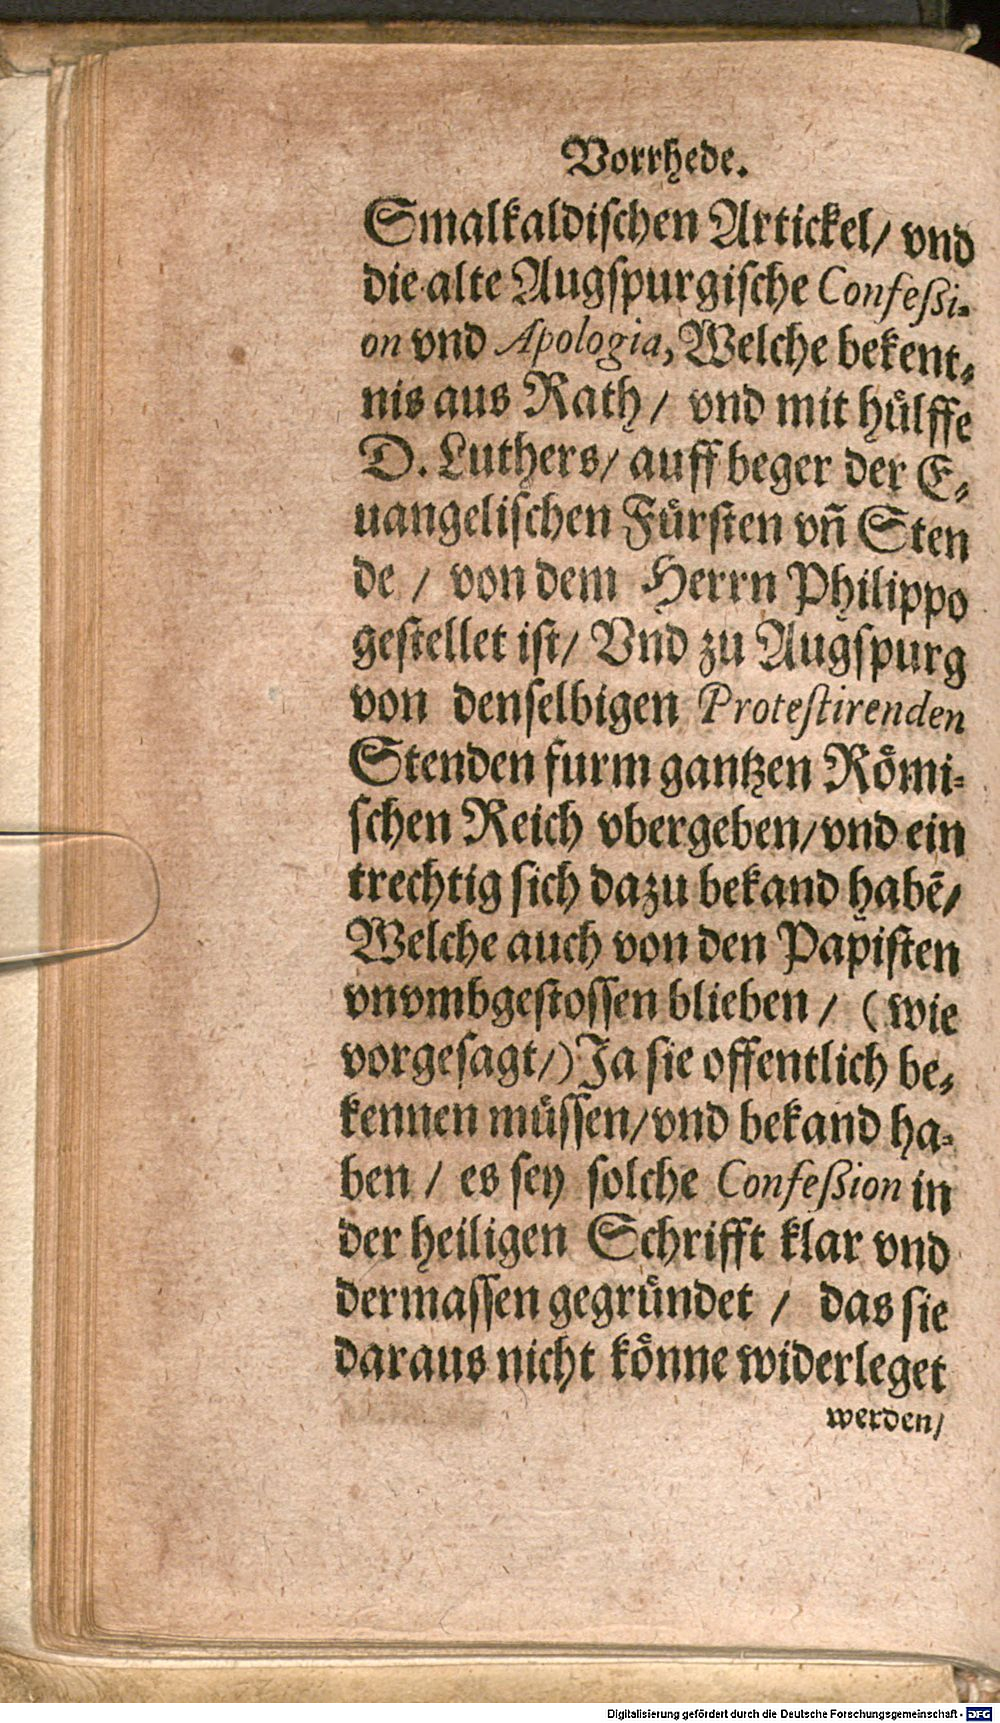 Vorrhede.
Smalkaldiſchen Artickel/ vnd
die alte Augſpurgiſche Confeßi-
on vnd Apologia, Welche bekent-
nis aus Rath / vnd mit huͤlffe
D. Luthers/ auff beger der E-
uangeliſchen Fuͤrſten vñ Sten
de / von dem Herrn Philippo
geſtellet iſt/ Vnd zu Augſpurg
von denſelbigen Proteſtirenden
Stenden furm gantzen Roͤmi-
ſchen Reich vbergeben/ vnd ein
trechtig ſich dazu bekand habē/
Welche auch von den Papiſten
vnvmbgeſtoſſen blieben / (wie
vorgeſagt/) Ja ſie offentlich be-
kennen muͤſſen/ vnd bekand ha-
ben / es ſey ſolche Confeßion in
der heiligen Schrifft klar vnd
dermaſſen gegruͤndet / das ſie
daraus nicht koͤnne widerleget
werden/
Digitalisierung gefördert durch die Deutsche Forschungsgemeinschaft - DFG